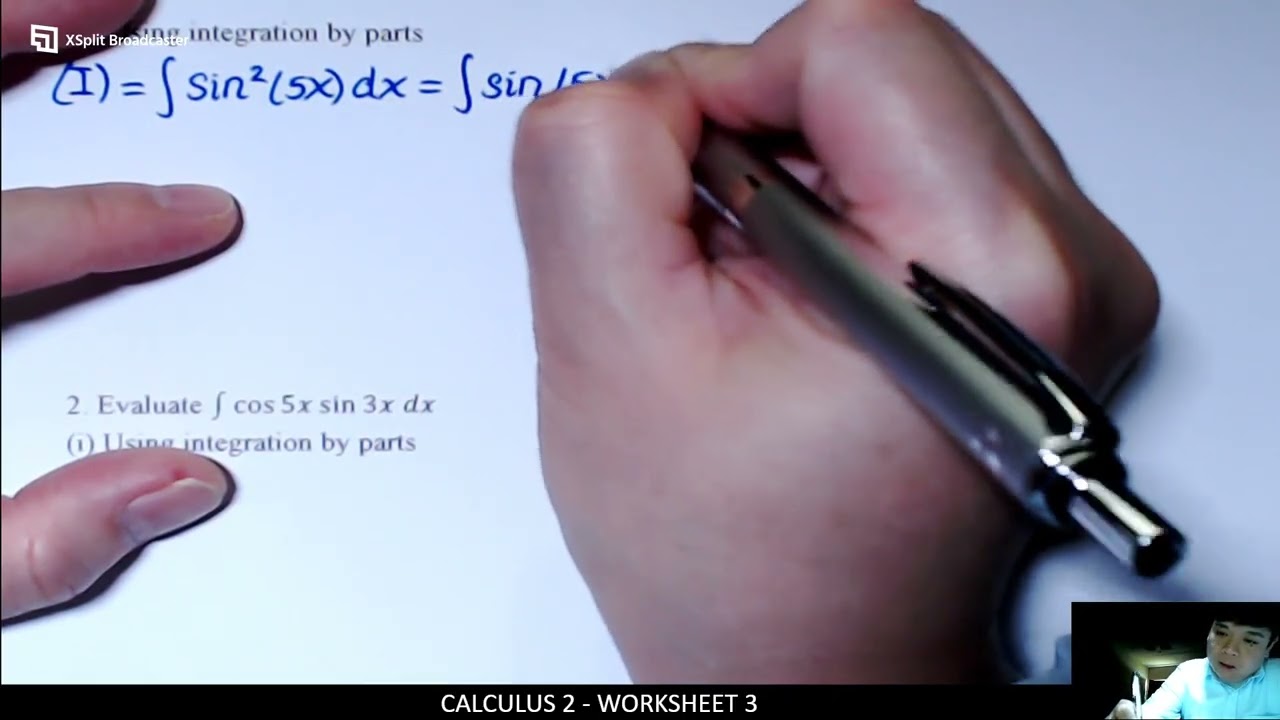 XSplit Broadcaster
integration by parts
(I) = ∫ sin²(5x) dx = ∫ sin(5x
2. Evaluate ∫ cos 5x sin 3x dx
(i) Using integration by parts
CALCULUS 2 - WORKSHEET 3